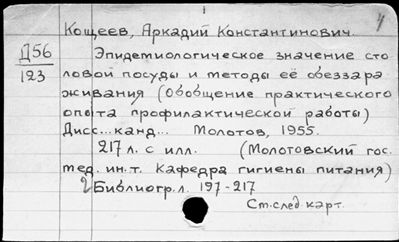 Кощеев, Аркадий Константинович.
Д56
123
Эпидемиологическое значение сто
ловой посуды и методы её обеззара
живания (Обобщение практического
опыта профилактической работы)
Дисс... канд... Молотов, 1955.
217 л. с илл. (Молотовский гос.
мед. ин.т. Кафедра гигиены питания)
Библиогр. л. 197-217
См. след карт.